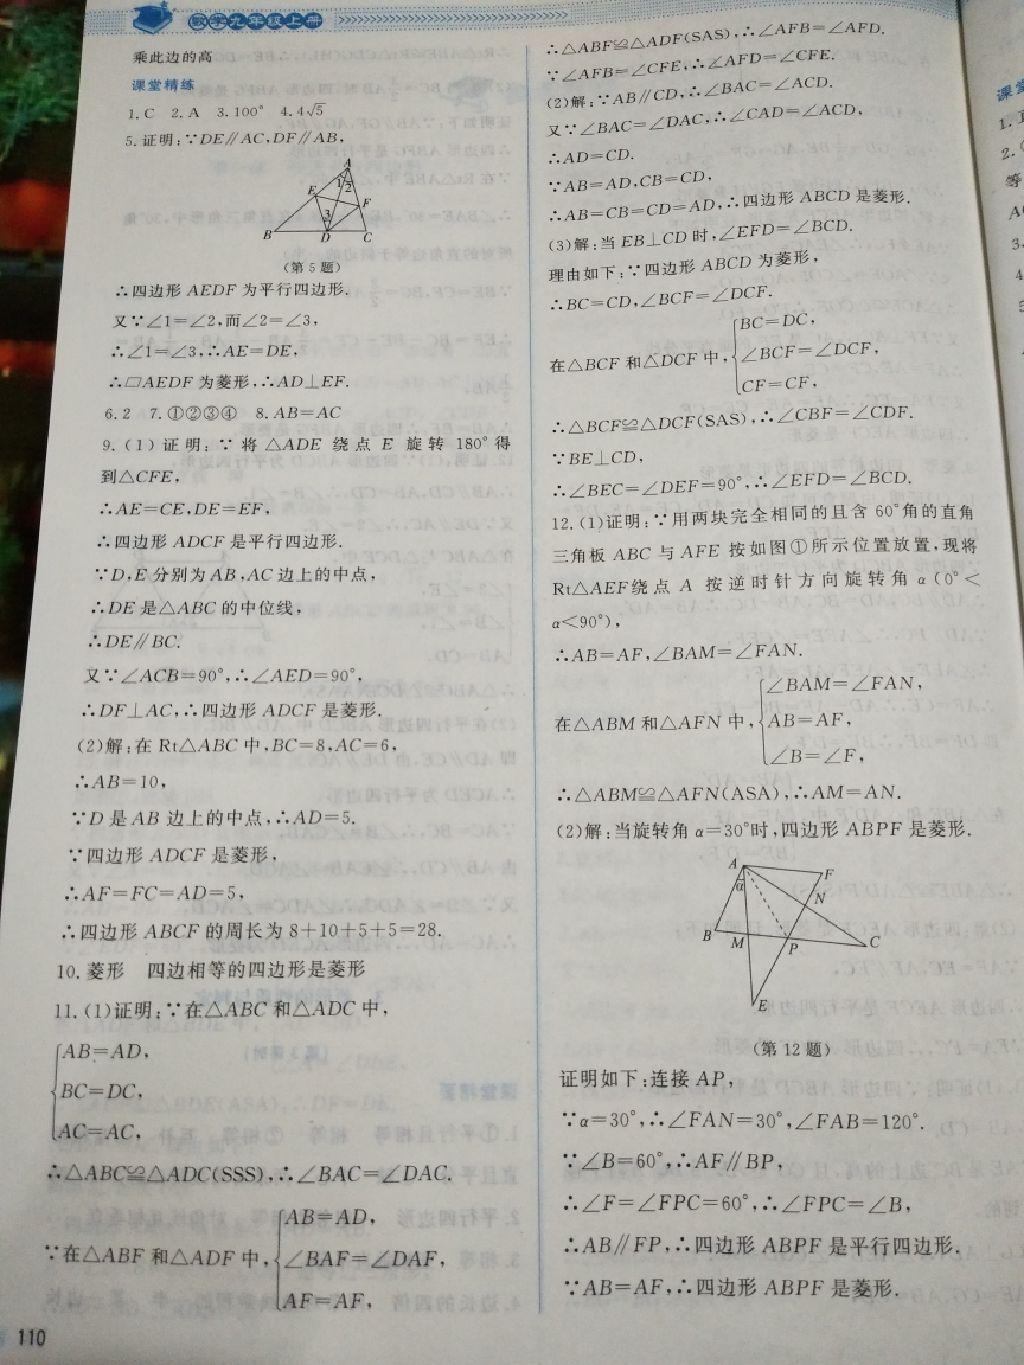 数学九年级上册
乘此边的高
课堂精练
1.C 2.A 3.100° 4.4√5
5.证明:∵DE∥AC,DF∥AB,
A
1
2
E
F
3
B
D
C
(第5题)
∴四边形 AEDF 为平行四边形.
又∵∠1=∠2,而∠2=∠3,
∴∠1=∠3,∴AE=DE,
∴▱AEDF 为菱形,∴AD⊥EF.
6.2 7.①②③④ 8.AB=AC
9.(1)证明:∵将△ADE 绕点 E 旋转 180°得
到△CFE,
∴AE=CE,DE=EF,
∴四边形 ADCF 是平行四边形.
∵D,E分别为AB,AC边上的中点,
∴DE是△ABC的中位线,
∴DE∥BC.
又∵∠ACB=90°,∴∠AED=90°,
∴DF⊥AC,∴四边形 ADCF 是菱形.
(2)解:在 Rt△ABC 中,BC=8,AC=6,
∴AB=10,
∵D是AB边上的中点,∴AD=5.
∵四边形 ADCF 是菱形,
∴AF=FC=AD=5,
∴四边形 ABCF 的周长为 8+10+5+5=28.
10.菱形 四边相等的四边形是菱形
11.(1)证明:∵在△ABC 和△ADC 中,
AB=AD,
BC=DC,
AC=AC,
∴△ABC≌△ADC(SSS),∴∠BAC=∠DAC.
AB=AD,
∵在△ABF 和△ADF 中,∠BAF=∠DAF,
AF=AF,
110
∴△ABF≌△ADF(SAS),∴∠AFB=∠AFD.
∵∠AFB=∠CFE,∴∠AFD=∠CFE.
(2)解:∵AB∥CD,∴∠BAC=∠ACD.
又∵∠BAC=∠DAC,∴∠CAD=∠ACD,
∴AD=CD.
∵AB=AD,CB=CD,
∴AB=CB=CD=AD,∴四边形 ABCD 是菱形.
(3)解:当EB⊥CD时,∠EFD=∠BCD.
理由如下:∵四边形 ABCD 为菱形,
∴BC=CD,∠BCF=∠DCF.
BC=DC,
在△BCF 和△DCF 中,∠BCF=∠DCF,
CF=CF,
∴△BCF≌△DCF(SAS),∴∠CBF=∠CDF.
∵BE⊥CD,
∴∠BEC=∠DEF=90°,∴∠EFD=∠BCD.
12.(1)证明:∵用两块完全相同的且含 60°角的直角
三角板 ABC 与 AFE 按如图①所示位置放置,现将
Rt△AEF绕点 A 按逆时针方向旋转角 α(0°<
α<90°),
∴AB=AF,∠BAM=∠FAN.
∠BAM=∠FAN,
在△ABM 和△AFN 中,AB=AF,
∠B=∠F,
∴△ABM≌△AFN(ASA),∴AM=AN.
(2)解:当旋转角 α=30°时,四边形 ABPF 是菱形.
A
F
α
N
B
M
P
C
E
(第12题)
证明如下:连接 AP,
∵α=30°,∴∠FAN=30°,∠FAB=120°.
∵∠B=60°,∴AF∥BP,
∴∠F=∠FPC=60°,∴∠FPC=∠B,
∴AB∥FP,∴四边形 ABPF 是平行四边形.
∵AB=AF,∴四边形 ABPF 是菱形.